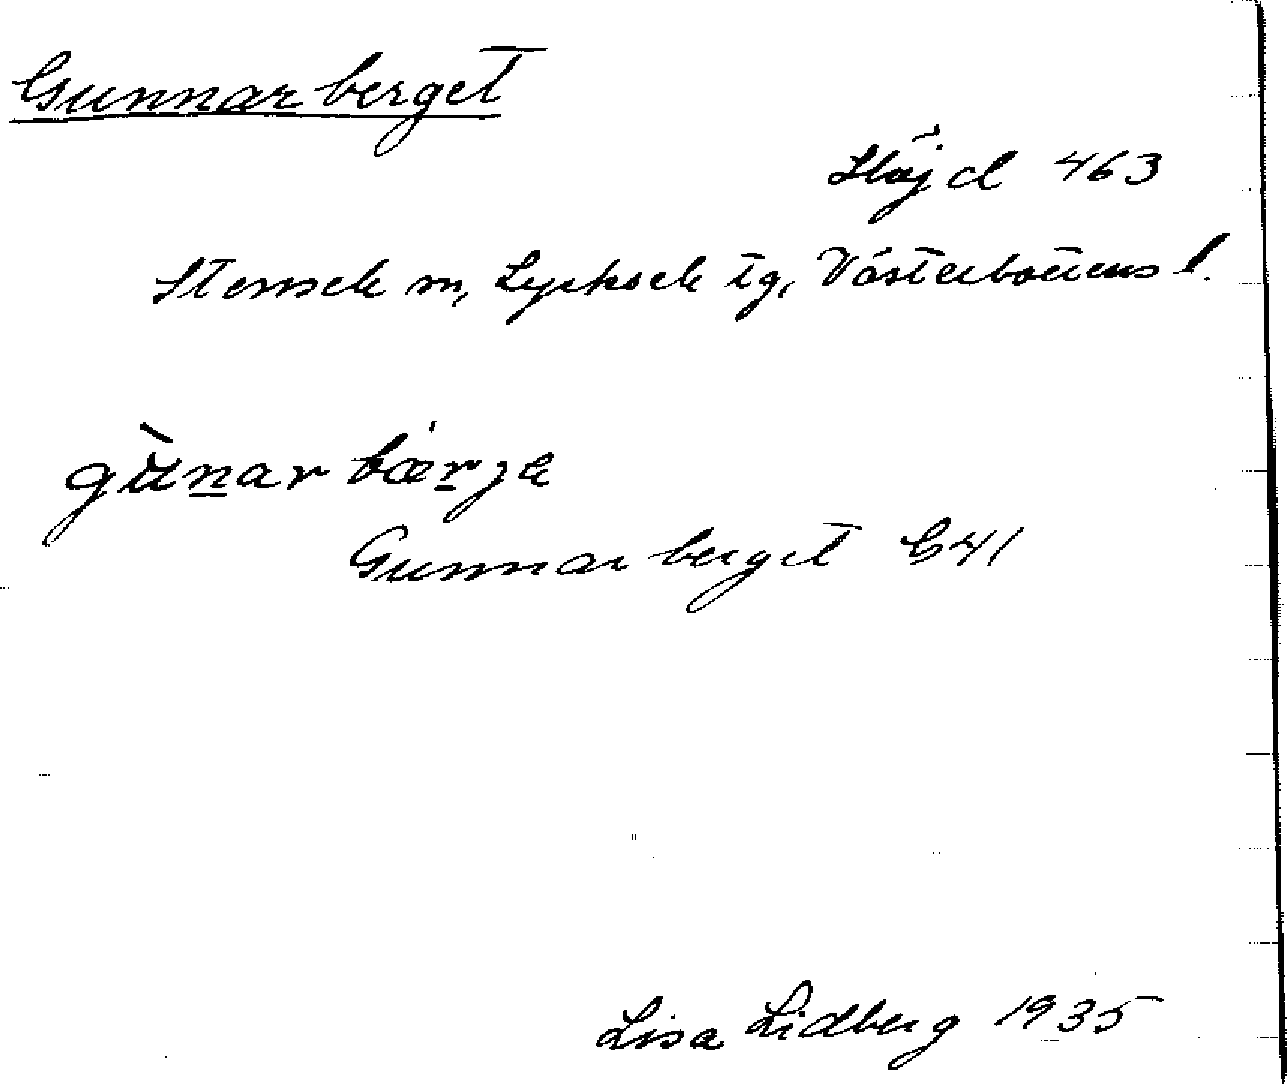 Gunnarberget
Höjd 463
Stensele sn, Lycksele tg, Västerbottens l.
gùnarbǽrje
Gunnarberget G41
Lisa Lidberg 1935